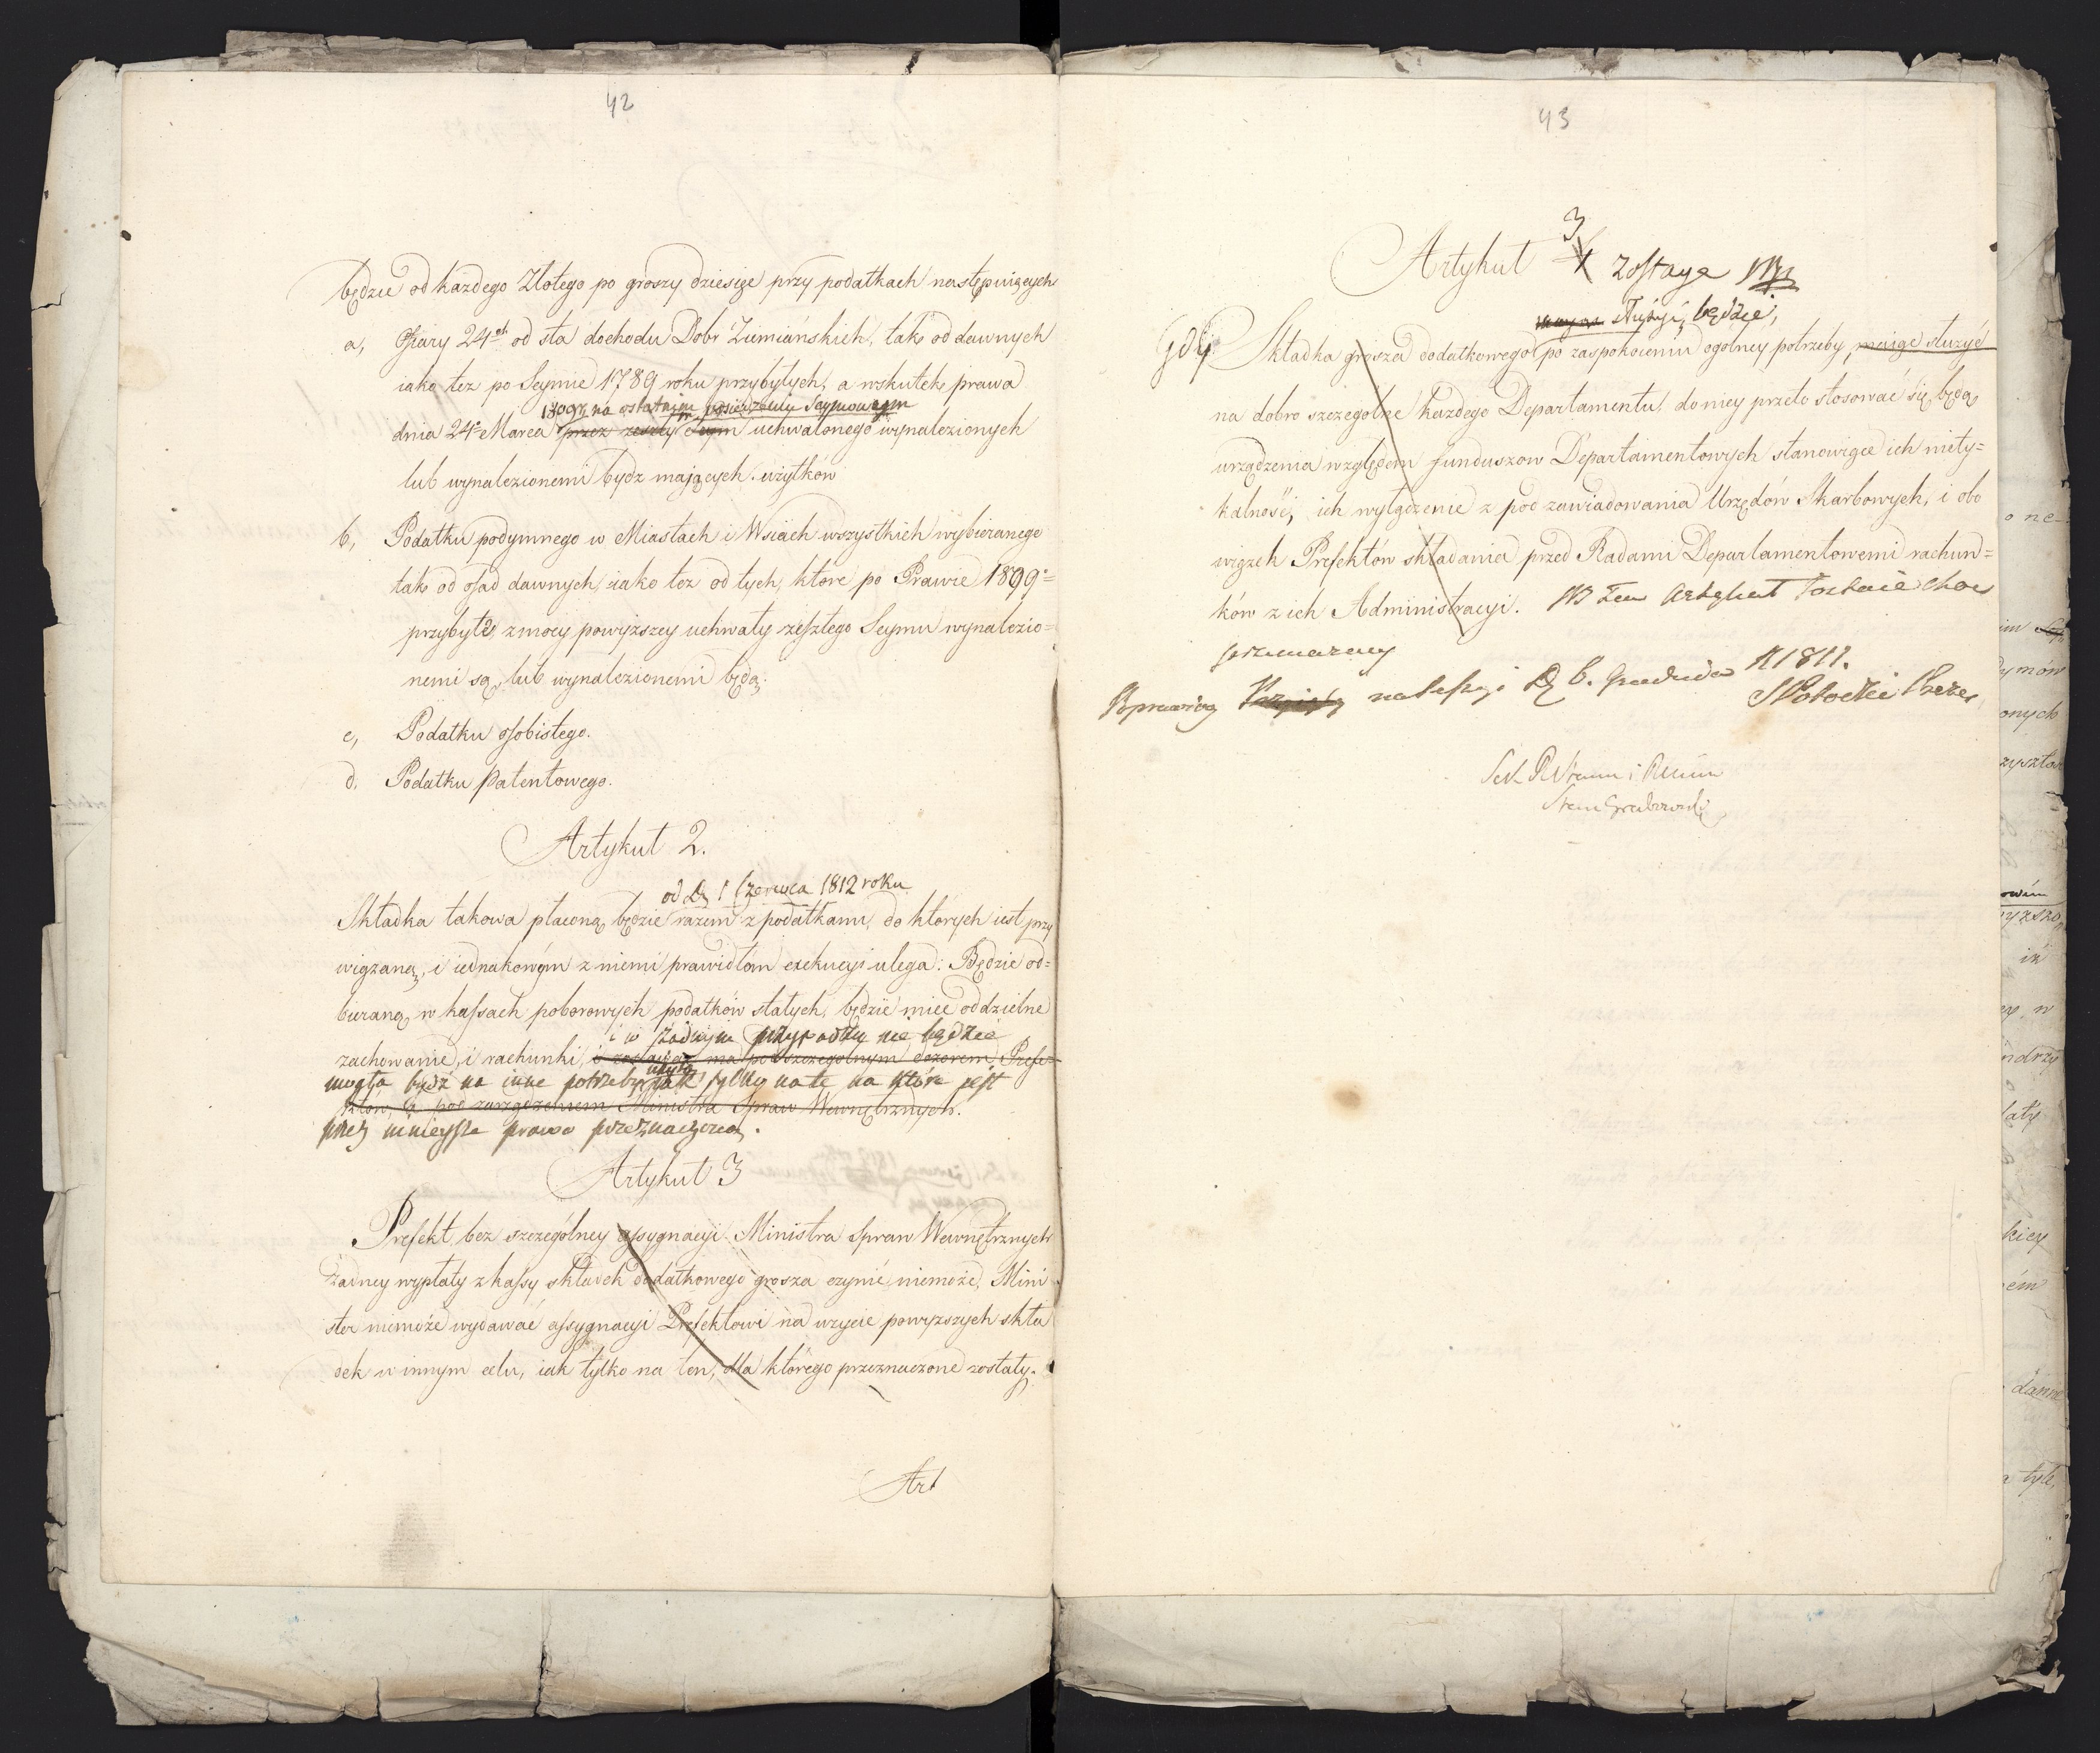 42
będzie od każdego Złotego po groszy dziesięć przy podatkach następuiących
a, Ofiary 24ej od sta dochodu Dobr Ziemiańskich, tak od dawnych
iako tez po Seymie 1789 roku przybyłych, a wskutek prawa
1809 r. na ostatnim posiedzeniu Seymowym
dnia 24o Marca przez zeszły Seym uchwalonego wynalezionych
lub wynalezionemi bydz maiących użytków
b, Podatku podymnego w Miastach i Wsiach wszystkich wybieranego
tak od osad dawnych, iako tez od tych, które po Prawie 1809o=
przybyłe, z mocy powyższey uchwały zeszłego Seymu wynalezio=
nemi są, lub wynalezionemi będą.
c, Podatku osobistego.
d. Podatku Patentowego.
Artykuł 2.
od D. 1 Czerwca 1812 roku
Składka takowa płaconą będzie razem z podatkami, do których iest przy
wiązaną, i iednakowym z niemi prawidłom exekucyi ulega: Będzie od=
bieraną w kassach poborowych podatków stałych, będzie mieć oddzielne
i w żadnym przypadku nie będzie
zachowanie, i rachunki, i zostawać ma pod szczególnym dozorem Prefe=
mogła bydź na inne potrzeby użytą jak tylko na tę na którą jest
któw, a pod zarządzeniem Ministra Spraw Wewnętrznych.
przez ninieysze prawo przeznaczona.
Artykuł 3
Prefekt, bez szczególney assygnacyi Ministra Spraw Wewnętrznych
żadney wypłaty z kassy składek dodatkowego grosza czynić niemoże, Mini
ster niemoże wydawać assygnacyi Prefektowi na użycie powyższych skła
dek w innym celu, iak tylko na ten, dla którego przeznaczone zostały.
Art
43
3
Artykuł 4 zostaye
służyć będzie,
Gdy Składka grosza dodatkowego po zaspokoieniu ogolney potrzeby, maiąc służyć
na dobro szczególne każdego Departamentu, do niey przeto stosować się będą
urządzenia względem funduszow Departamentowych stanowiące ich niety=
kalność, ich wyłączenie z pod zawiadowania Urzędów Skarbowych, i obo
wiązek Prefektów składania przed Radami Departamentowemi rachun=
ków z ich Administracyi. NB ten Artykuł
przemazany
D. 6. Grudnia R 1811.
S Potocki Prezes
Stan Grabowski